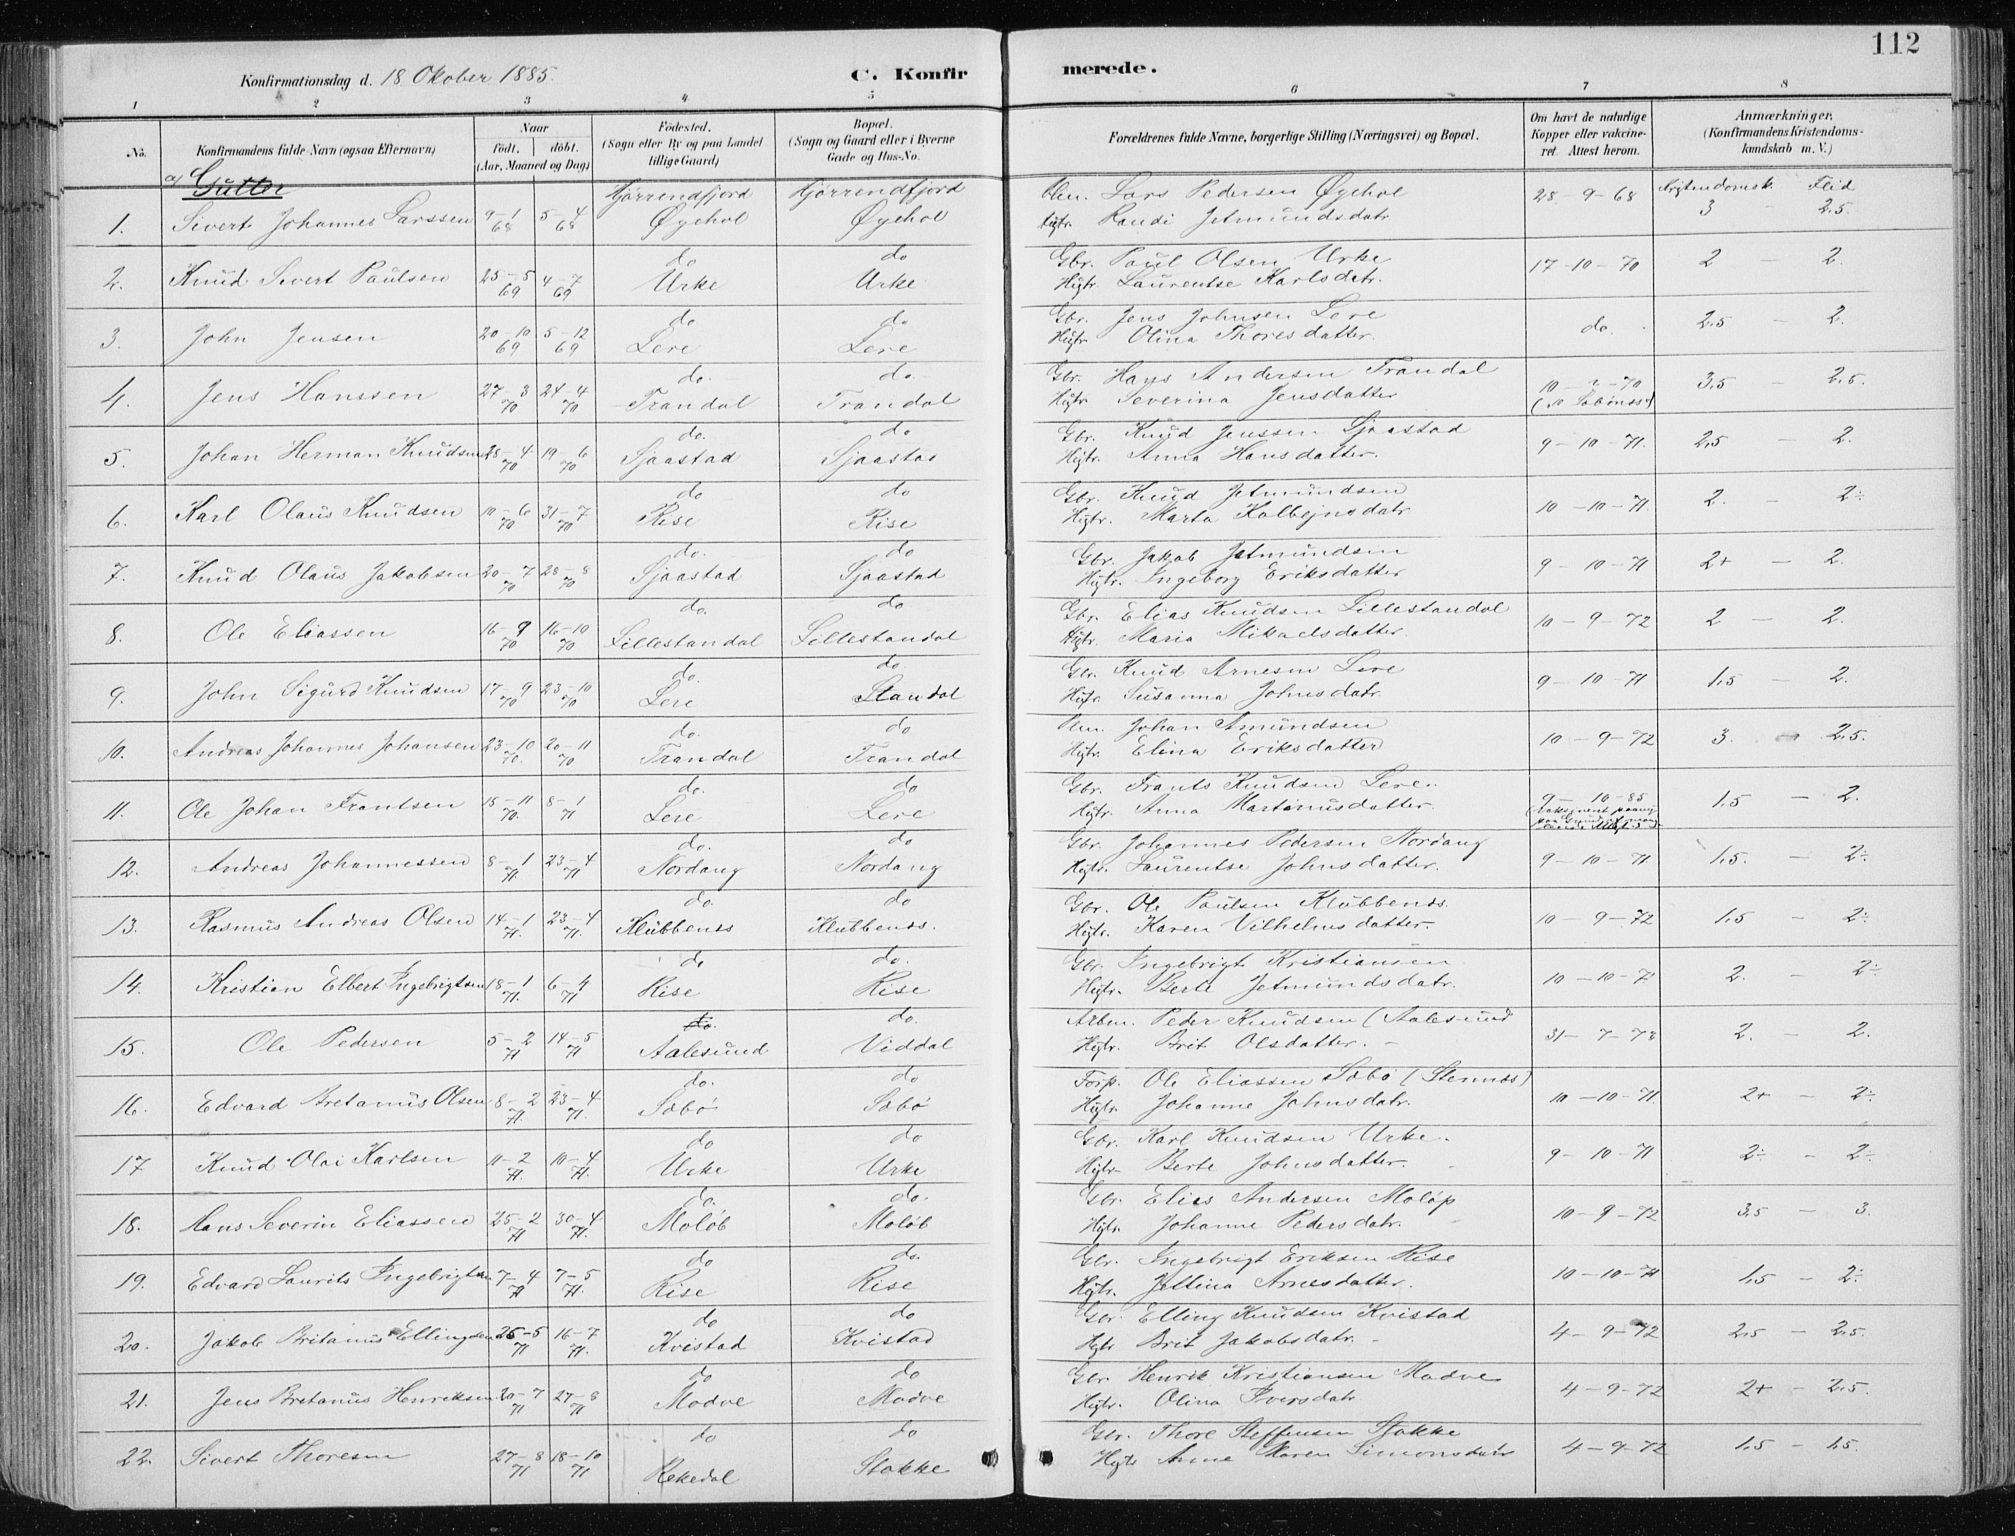 112
Konfirmationsdag d. 18 Oktober 1885.
C. Konfirmerede.
1 2 3 4 5 6 7 8
No. Konfirmandens fulde Navn (ogsaa Efternavn) Naar født. døbt. (Aar, Maaned og Dag) Fødested. (Sogn eller By og paa Landet tillige Gaard) Bopæl. (Sogn og Gaard eller i Byerne Gade og Hus-No. Forældrenes fulde Navne, borgerlige Stilling (Næringsvei) og Bopæl. Om havt de naturlige Kopper eller vakcineret. Attest herom. Anmærkninger, (Konfirmandens Kristendomskundskab m. V.)
a) Gutter Hjørrendfjord Hjørrendfjord Kristendomsk. Flid
1. Sivert Johannes Larssen 9-1 68 5-4 68 Øyehol Øyehol Lars Pedersen Øyehol Hustr. Randi Jetmundsdatr. 28-9-68 3 - 2.5.
2. Knud Sivert Paulsen 25-5 69 4-7 69 do Urke do Urke Gbr. Paul Olsen Urke Hustr. Laurentse Karlsdatr. 17-10-70 2 - 2.
3. John Jensen 20-10 69 5-12 69 do Lere do Lere Gbr. Jens Johnsen Lere Hustr. Olina Thoresdatter. do. 2,5 - 2.
4. Jens Hanssen 27-3 70 24-4 70 do. Trandal do. Trandal Gbr. Hans Andersen Trandal Hustr. Severina Jensdatter 3,5 - 2.5.
5. Johan Herman Knudsen 28-4 70 19-6 70 do. Sjaastad do Sjaastad Gbr. Knud Jenssen Sjaastad Hustr. Anna Hansdatter. 9-10-71. 2,5 - 2.
6. Karl Olaus Knudsen 10-6 70 31-7 70 do Rise do Rise Gbr. Knud Jetmundsen Hustr. Marta Kolbejnsdatr 10-10-71. 2. - 2÷
7. Knud Olaus Jakobsen 20-7 70 28-8 70 do. Sjaastad do Sjaastad Gbr. Jakob Jetmundsen Hustr. Ingeborg Eriksdatter 9-10-71 2+ - 2.
8. Ole Eliassen 16-9 70 16-10 70 do. Lillestandal do Lillestandal Gbr. Elias Knudsen Lillestandal Hustr. Maria Mikaelsdatter. 10-9-72 2 - 2.
9. John Sigurd Knudsen 17-9 70 23-10 70 do. Lere do. Standal Gbr. Knud Arnesen Lere Hustr. Susanna Johnsdatr. 9-10-71 1,5 - 2.
10. Andreas Johannes Johansen 23-10 70. 20-11 70 do. Trandal do Trandal Johan Amundsen Hustr. Elina Eriksdatter 10-9-72 3. - 2.5.
11. Ole Johan Frantsen 15-11 70. 8-1 71 do. Lere do Lere Gbr. Frants Knudsen Lere. Hustr. Anna Martinusdatter. 9-10-85 1,5 - 2.
12. Andreas Johannessen 8-1 71. 23-4 71 do. Nordang do Nordang Gbr. Johannes Pedersen Nordang Hustr. Laurentse Johnsdatter. 9-10-71 1,5. - 2÷
13. Rasmus Andreas Olsen 14-1 71. 23-4 71. do. Klubbenes do Klubbenes. Gbr. Ole Paulsen Klubbenes. Hustr. Karen Vilhelmsdatter. 10-9-72 1,5 - 2÷
14. Kristian Elbert Ingebrigtsen 18-1 71. 6-4 71 do Rise do. Rise Gbr. Ingebrigt Kristiansen Hustr. Berte Jetmundsdatr. 10-10-71 2. - 2÷
15. Ole Pedersen 5-2 71 14-5 71 do. Aalesund do. Viddal Arben. Peder Knudsen (Aalesund Hustr. Brit Olsdatter. 31-7-73 2. - 2.
16. Edvard Bretanus Olsen 8-2 71. 23-4 71. do. Sæbø do Sæbø Forp. Ole Eliassen Sæbø (Stennes) Hustr. Johanne Johnsdatr. 10-10-71. 2+ - 2÷
17 Knud Olai Karlsen 11-2 71. 10-4 71. do Urke do Urke Gbr. Karl Knudsen Urke. Hustr. Berte Johnsdatter. 9-10-71 2÷ - 2÷
18. Hans Severin Eliassen 25-2 71 30-4 71. do. Moløb do. Moløb Gbr. Elias Andersen Moløp Hustr. Johanne Pedersdatr. 10-9-72 3,5 - 3.
19. Edvard Laurits Ingebrigtsen 7-4 71 7-5 71. do Rise do. Rise Gbr. Ingebrigt Eriksen Rise Hustr. Jettina Arnesdatter. 10-10-71 1,5 - 2÷
20. Jakob Britanus Ellingsen 25-5 71 16-7 71. do Kvistad do Kvistad Gbr. Elling Knudsen Kvistad Hustr Brit Jakobsdatr. 4-9-72 2,5 - 2,5.
21. Jens Bretanus Henriksen 20-7 71 27-8 71 do Modve do Modve Gbr. Henrik Kristiansen Modve Hustr. Olina Iversdatr. 4-9-72 2+ - 2,5.
22. Sivert Thoresen 27-8 71 18-10 71 do Rekedal do Stokke Gbr. Thore Steffensen Stokke Hustr Anne Maren Simonsdatr 4-9-72 1,5 - 1,5.